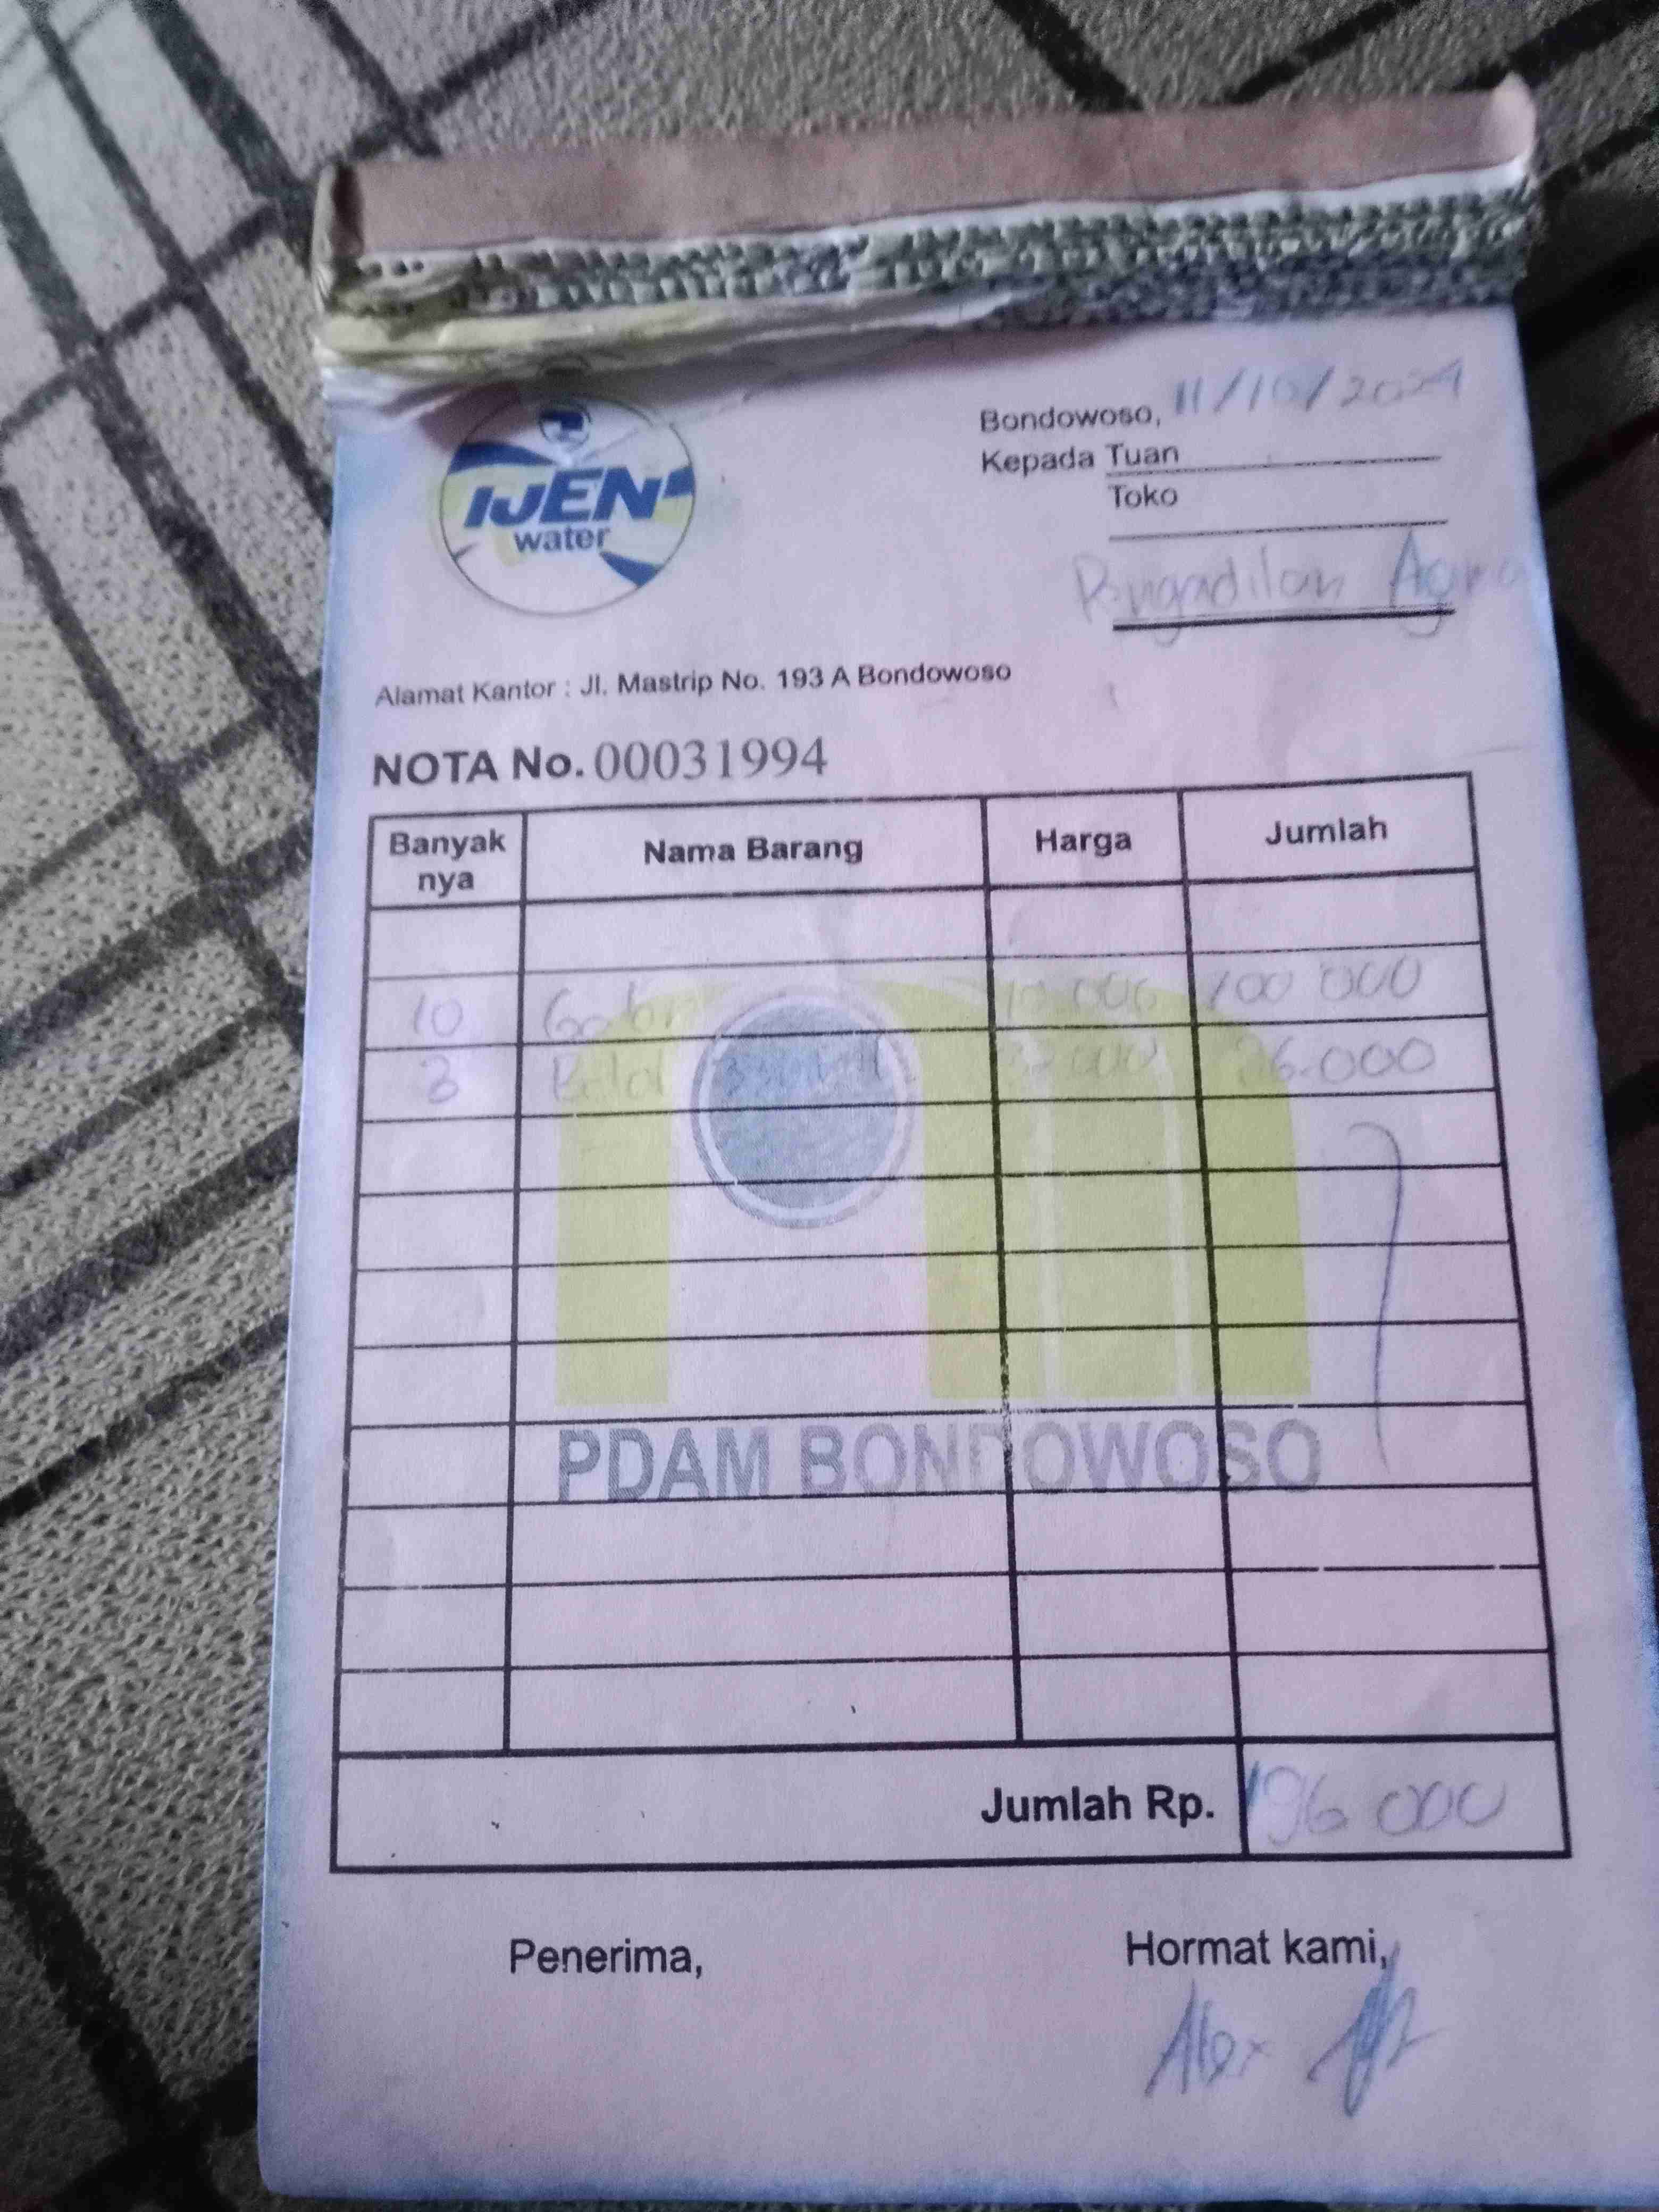 IJEN
water
Bondowoso, 11/10/2024
Kepada Tuan
Toko
Pengadilan Agama
Alamat Kantor : Jl. Mastrip No. 193 A Bondowoso
NOTA No. 00031994
Banyak nya Nama Barang Harga Jumlah
10 10 000 100 000
3 Botol 330 ml 000
PDAM BONDOWOSO
Jumlah Rp. 196 000
Penerima, Hormat kami,
Alex